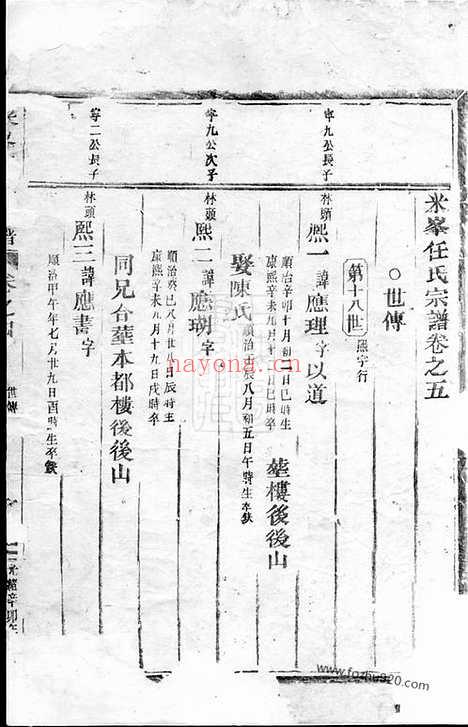 米峯任氏宗譜卷之五
○世傳
第十八世 熙字行
寧九公長子
林頭
熙一 諱應理 字以道
順治辛卯十月初二日巳時生
康熙辛未九月十二日巳時卒
葬樓後後山
娶陳氏
順治壬辰八月初五日午時生卒缺
寧九公次子
林頭
熙二 諱應瑚 字
順治癸巳八月廿日辰時生
康熙辛未九月十九日戌時卒
同兄合葬本都樓後後山
寧二公長子
林頭
熙三 諱應書 字
順治甲午年七月廿九日酉時生卒缺
世傳
nayona.cn
www.fozhu920.com